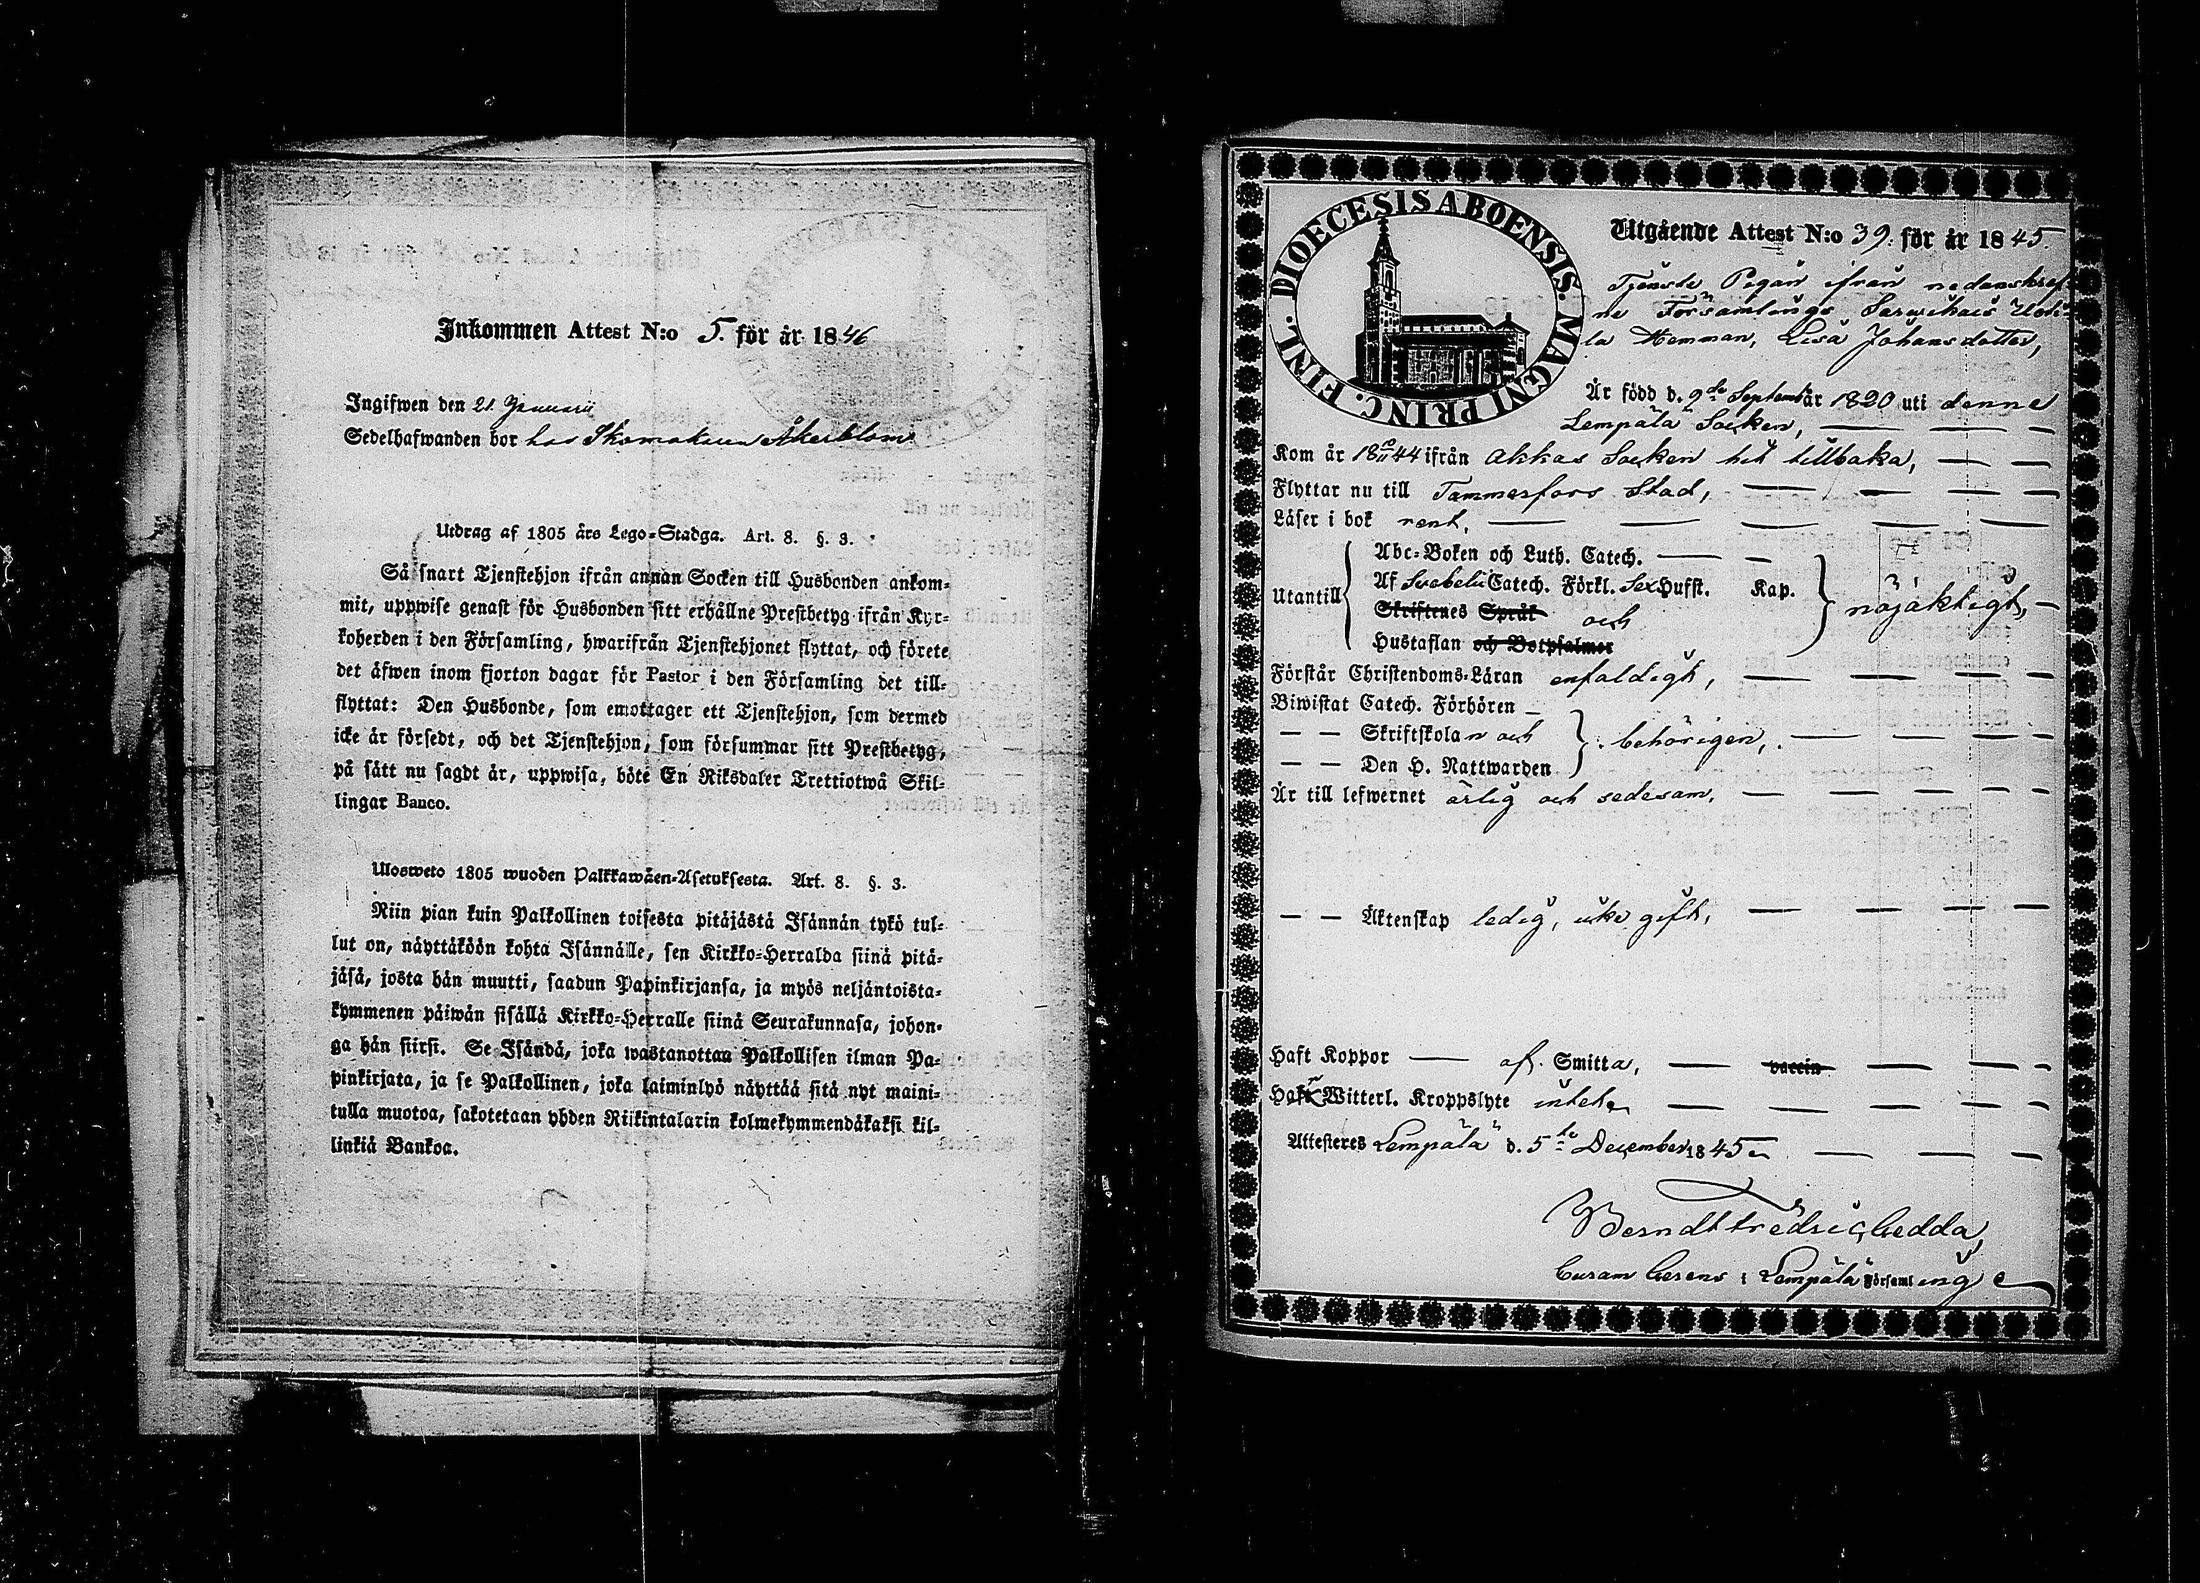 Inkommen Attest N:o 5. för år 1846
Ingifwen den 21 Januarii
Sedelhafwanden bor hos Skomakaren Åkerblom
Utdrag af 1805 års Lego-Stadga. Art. 8. §. 3.
Så snart Tjenstehjon ifrån annan Socken till Husbonden ankom-
mit, uppwise genast för Husbonden sitt erhållne Prestbetyg ifrån Kyr-
koherden i den Församling, hwarifrån Tjenstehjonet flyttat, och förete
det äfwen inom fjorton dagar för Pastor i den Församling det till-
flyttat: Den Husbonde, som emottager ett Tjenstehjon, som dermed
icke är försedt, och det Tjenstehjon, som försummar sitt Prestbetyg,
på sätt nu sagdt är, uppwisa, böte En Riksdaler Trettiotwå Skil-
lingar Banco.
Ulosweto 1805 wuoden Palkkawäen-Asetuksesta. Art. 8. §. 3.
Niin pian kuin Palkollinen toisesta pitäjästä Isännän tykö tul-
lut on, näyttäköön kohta Isännälle, sen Kirkko-Herralda siinä pitä-
jäsä, josta hän muutti, saadun Papinkirjansa, ja myös neljäntoista-
kymmenen päiwän sisällä Kirkko-Herralle siinä Seurakunnasa, johon-
ga hän siirsi. Se Isändä, joka wastanottaa Palkollisen ilman Pa-
pinkirjata, ja se Palkollinen, joka laiminlyö näyttää sitä nyt maini-
tulla muotoa, sakotetaan yhden Riikintalarin kolmekymmendäkaksi kil-
linkiä Bankoa.
DIOECESIS ABOENSIS. MAGNI PRINC. FINL.
Utgående Attest N:o 39. för år 1845.
Tjenste Pigan ifrån nedanskref-
ne Församlings
la Hemman, Lisa Johansdotter,
Är född d. 9de September år 1820 uti denne
Lempälä Socken,
Kom år 1844 ifrån Akkas Socken hit tillbaka,
Flyttar nu till Tammerfors Stad,
Läser i bok rent,
Utantill
Abc-Boken och Luth. Catech.
Af Svebelii Catech. Förkl. Sex Hufst. Kap.
Skriftenes Språk och
Hustaflan och Botpsalmer
nöjaktigt,
Förstår Christendoms-Läran enfaldigt,
Biwistat Catech. Förhören
Skriftskolan och
Den H. Nattwarden
behörigen,
Är till lefwernet ärlig och sedesam,
Äktenskap ledig, icke gift,
Haft Koppor af Smitta, vaccin
Witterl. Kroppslyte intet
Attesteres Lempälä d. 5te December 1845
Berndt Fredric Gedda,
Curam Gerens i Lempälä Församling